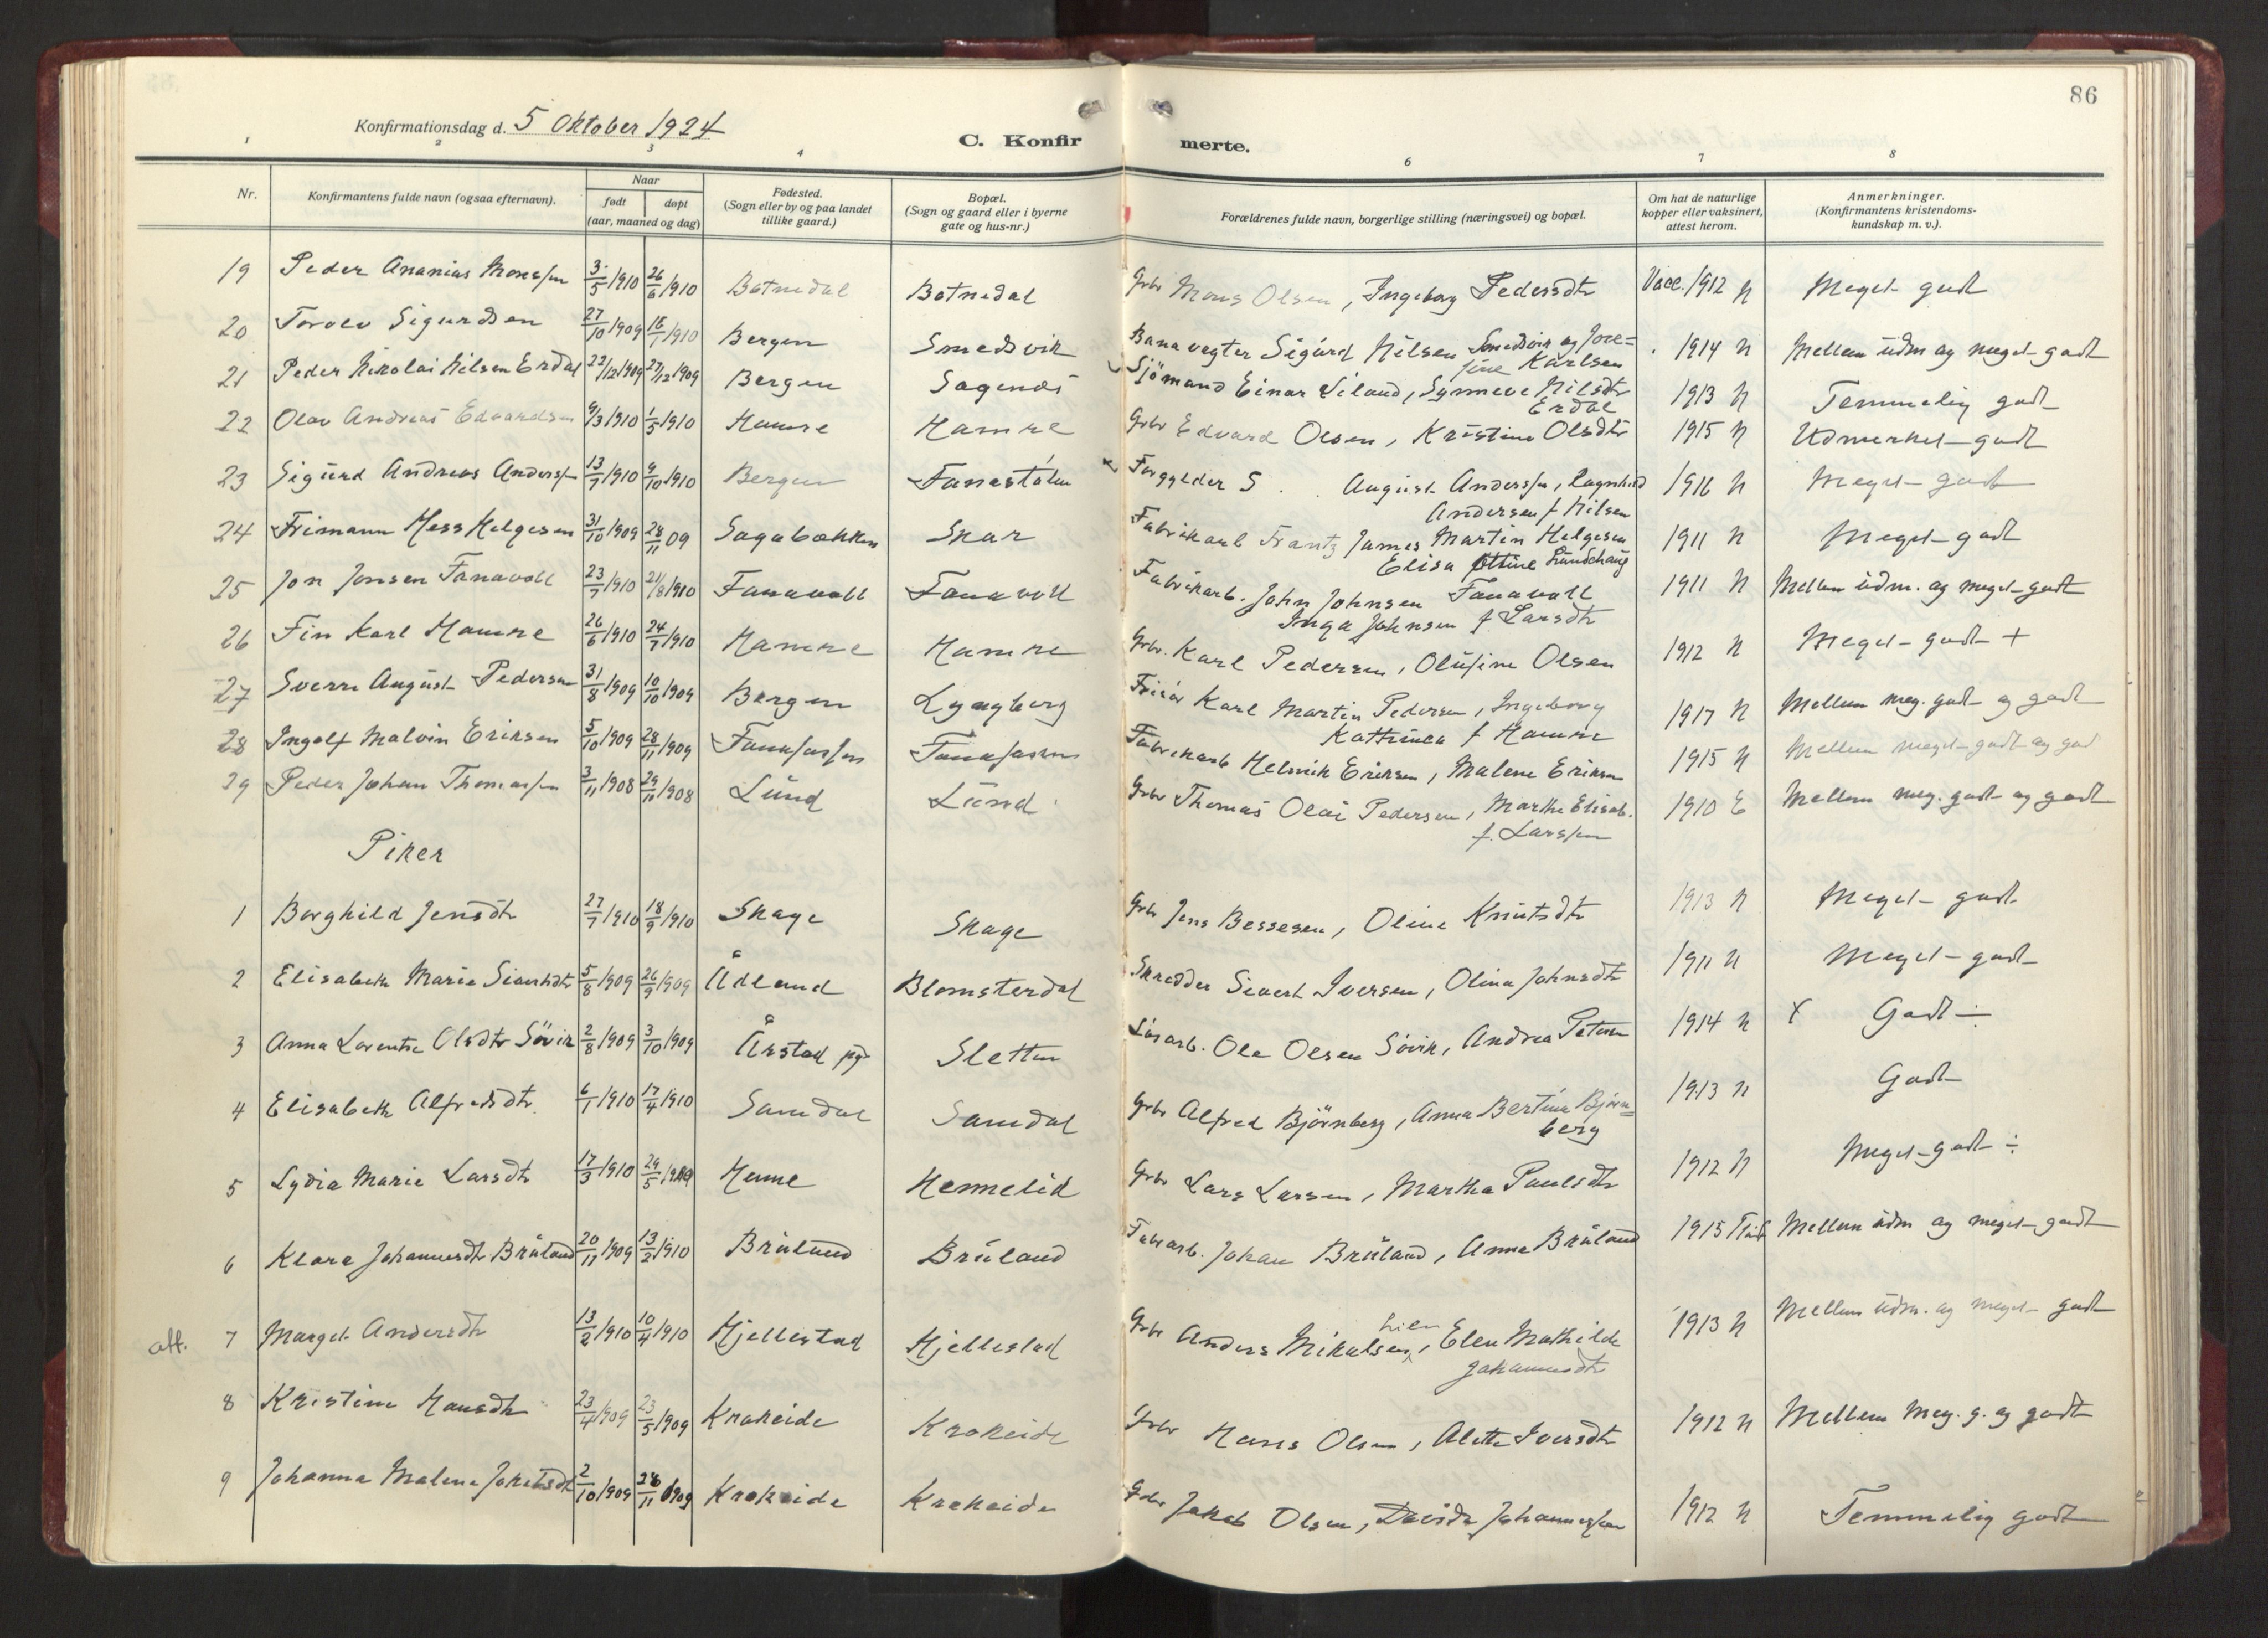 86
Konfirmationsdag d. 5 Oktober 1924
C. Konfirmerte.
1 2 3 4 6 7 8
Nr.
Konfirmantens fulde navn (ogsaa efternavn).
Naar
født
døpt
(aar, maaned og dag)
Fødested.
(Sogn eller by og paa landet
tillike gaard.)
Bopæl.
(Sogn og gaard eller i byerne
gate og hus-nr.)
Forældrenes fulde navn, borgerlige stilling (næringsvei) og bopæl.
Om hat de naturlige
kopper eller vaksinert,
attest herom.
Anmerkninger.
(Konfirmantens kristendoms-
kundskap m. v.).
19 Peder Ananias Monssen 3/5 1910 26/6 1910 Botnedal Botnedal Grbr Mons Olsen, Ingeborg Pedersdtr Vacc. 1912 N Meget godt
20 Torolv Sigurdsen 27/10 1909 16/1 1910 Bergen Smedsvik Banavogter Sigurd Nilsen Smedsvik og Jose=
fine Karlsen 1914 N Mellem udm og meget godt
21 Peder Nikolai Nilsen Erdal 22/12 1909 27/12 1909 Bergen Sjömand Einar Liland, Synneve Nilsdtr
Erdal 1913 N Temmelig godt
22 Olav Andreas Edvardsen 9/3 1910 1/5 1910 Hamre Hamre Grbr Edvard Olsen, Kristine Olsdtr 1915 N Udmerket godt
23 Sigurd Andreas Anderssen 13/7 1910 9/10 1910 Bergen Forgylder S. August Anderssen, Ragnhild
Andersen f Nilsen 1916 N Meget godt
24 Frimann Hess Helgesen 31/10 1909 28/11 09 Sagabakken Skar Fabrikarb Frantz James Martin Helgesen
Elisa Ottine 1911 N Meget godt
25 Jon Jonsen Fanavoll 23/7 1910 21/8 1910 Fanavoll Fanavoll Fabrikarb. John Johnsen Fanavoll
Inga Johnsen f Larsdtr 1911 N Mellem udm. og meget godt
26 Fin Karl Hamre 26/6 1910 24/7 1910 Hamre Hamre Grbr. Karl Pedersen, Olufine Olsen 1912 N Meget godt +
27 Sverre August Pedersen 31/8 1909 10/10 1909 Bergen Lyngborg Frisør Karl Martin Pedersen, Ingeborg
Kathinca f Hamre 1917 N Mellem meg. godt og godt
28 Ingolf Malvin Eriksen 5/10 1909 28/11 1909 Fanafassen Fanafassen Fabrikarb Helmik Eriksen, Malene Eriksen 1915 N Mellem meget godt og god
29 Peder Johan Thomassen 3/11 1908 29/11 1908 Lund Lund Grbr Thomas Olai Pedersen, Marthe Elisab.
f. Larssen 1910 E Mellem meg. godt og godt
Piker
1 Borghild Jensdtr 27/7 1910 18/9 1910 Skage Skage Grbr Jens Bessesen, Oline Knutsdtr 1913 N Meget godt
2 Elisabeth Marie Sivertsdtr 5/8 1909 26/9 1909 Ådland Blomsterdal Skrædder Sivert Iversen, Olina Johnsdtr 1911 N Meget godt
3 Anna Lorentse Olsdtr Søvik 2/8 1909 3/10 1909 Årstad pgj Sletten Løsarb. Ole Olsen Søvik, Andrea Petersen 1914 N X Godt ÷
4 Elisabeth Alfredsdtr 6/1 1910 17/4 1910 Samdal Samdal Grbr Alfred Björnberg, Anna Bertina Björn=
berg 1913 N Godt
5 Lydia Marie Larsdtr 17/3 1910 29/5 1910 Hemmelid Grbr Lars Larsen, Martha Paulsdtr 1912 N Meget godt ÷
6 Klara Johannesdtr Bruland 20/11 1909 13/2 1910 Bruland Bruland Fabrarb. Johan Bruland, Anna Bruland 1915 Mellem udm og meget godt
att. 7 Margot Andersdtr 13/2 1910 10/4 1910 Hjellestad Hjellestad Grbr Anders Mikalsen lien, Elen Mathilde
Johannesdtr 1913 N Mellem udm. og meget godt
8 Kristine Hansdtr 23/4 1909 23/5 1909 Krokeide Krokeide Grbr Hans Olsen, Alette Iversdtr 1912 N Mellem meg. g. og godt
9 Johanna Malene Jakobsdtr 2/10 1909 28/11 1909 Krokeide Krokeide Grbr Jakob Olsen, Davida Johannessen 1912 N Temmelig godt